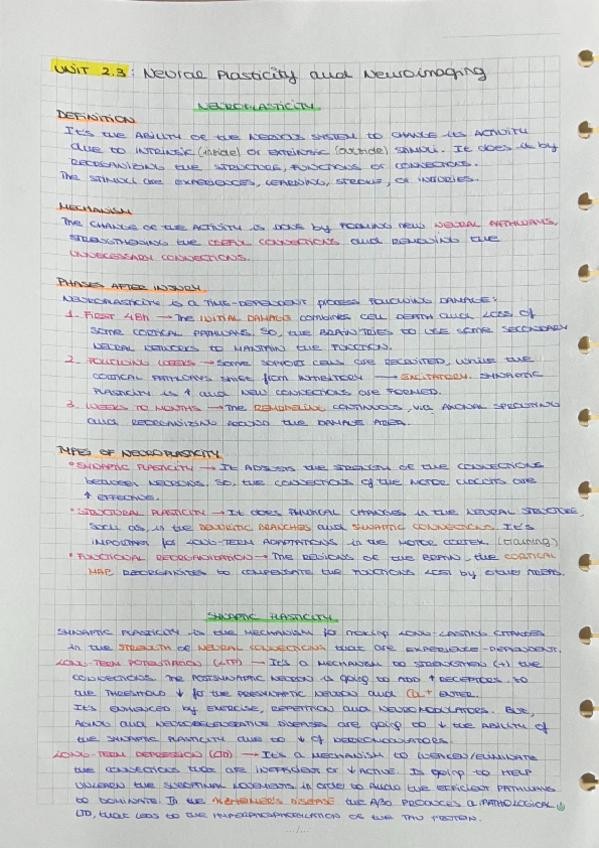 UNIT 2.3: Neural Plasticity and Neuroimaging
NEUROPLASTICITY
DEFINITION
It's the ABILITY OF the NERVOUS SYSTEM TO CHANGE its ACTIVITY
due to INTRINSIC (inside) or EXTRINSIC (outside) STIMULI. It does it by
REORGANIZING the STRUCTURE, FUNCTIONS or CONNECTIONS.
The STIMULI are EXPERIENCES, LEARNING, STROKE, or INJURIES.
MECHANISM
The CHANGE OF the ACTIVITY is DONE by FORMING NEW NEURAL PATHWAYS,
STRENGTHENING the USEFUL CONNECTIONS and REMOVING the
UNNECESSARY CONNECTIONS.
PHASES AFTER INJURY
NEUROPLASTICITY is a TIME-DEPENDENT process FOLLOWING DAMAGE:
1. FIRST 48h → The INITIAL DAMAGE combines CELL DEATH and LOSS OF
SOME CORTICAL PATHWAYS. SO, the BRAIN TRIES to USE SOME SECONDARY
NEURAL NETWORKS to MAINTAIN the FUNCTION.
2. FOLLOWING WEEKS → SOME SUPPORT CELLS are RECRUITED, WHILE the
CORTICAL PATHWAYS SHIFT from INHIBITORY → EXCITATORY. SYNAPTIC
PLASTICITY is ↑ and NEW CONNECTIONS are FORMED.
3. WEEKS TO MONTHS → The REMODELING CONTINUOUS, via AXONAL SPROUTING
and REORGANIZING AROUND the DAMAGE AREA.
TYPES OF NEUROPLASTICITY
• SYNAPTIC PLASTICITY → It ADJUSTS the STRENGTH OF the CONNECTIONS
between NEURONS. SO, the CONNECTIONS of the MOTOR CIRCUITS are
↑ EFFECTIVE.
• STRUCTURAL PLASTICITY → It does PHYSICAL CHANGES in the NEURAL STRUCTURE,
such as, in the DENDRITIC BRANCHES and SYNAPTIC CONNECTIONS. It's
IMPORTANT for LONG-TERM ADAPTATIONS in the MOTOR CORTEX. (training)
• FUNCTIONAL REORGANISATION → The REGIONS OF the BRAIN, the CORTICAL
MAP REORGANIZES to COMPENSATE the FUNCTIONS LOST by other AREAS.
SYNAPTIC PLASTICITY
SYNAPTIC PLASTICITY is the MECHANISM for MAKING LONG-LASTING CHANGES
in the STRENGTH OF NEURAL CONNECTIONS that are EXPERIENCE-DEPENDENT.
LONG-TERM POTENTIATION (LTP) → It's a MECHANISM to STRENGTHEN (+) the
CONNECTIONS. The POSTSYNAPTIC NEURON is going to ADD ↑ RECEPTORS. SO
the THRESHOLD ↓ for the PRESYNAPTIC NEURON and Ca+ ENTER.
It's ENHANCED by EXERCISE, REPETITION and NEUROMODULATORS. But,
AGING and NEURODEGENERATIVE DISEASES are going to ↓ the ABILITY of
the SYNAPTIC PLASTICITY due to ↓ OF
LONG-TERM DEPRESSION (LTD) → It's a MECHANISM to WEAKEN/ELIMINATE
the CONNECTIONS that are INEFFICIENT or ↓ ACTIVE. Is going to HELP
UNLEARN the SUBOPTIMAL MOVEMENTS in order to ALLOW the EFFICIENT PATHWAYS
to DOMINATE. In the ALZHEIMER'S DISEASE the PRODUCES a PATHOLOGICAL
LTD, that LEADS to the HYPERPHOSPHORYLATION OF the TAU PROTEIN.
.../...